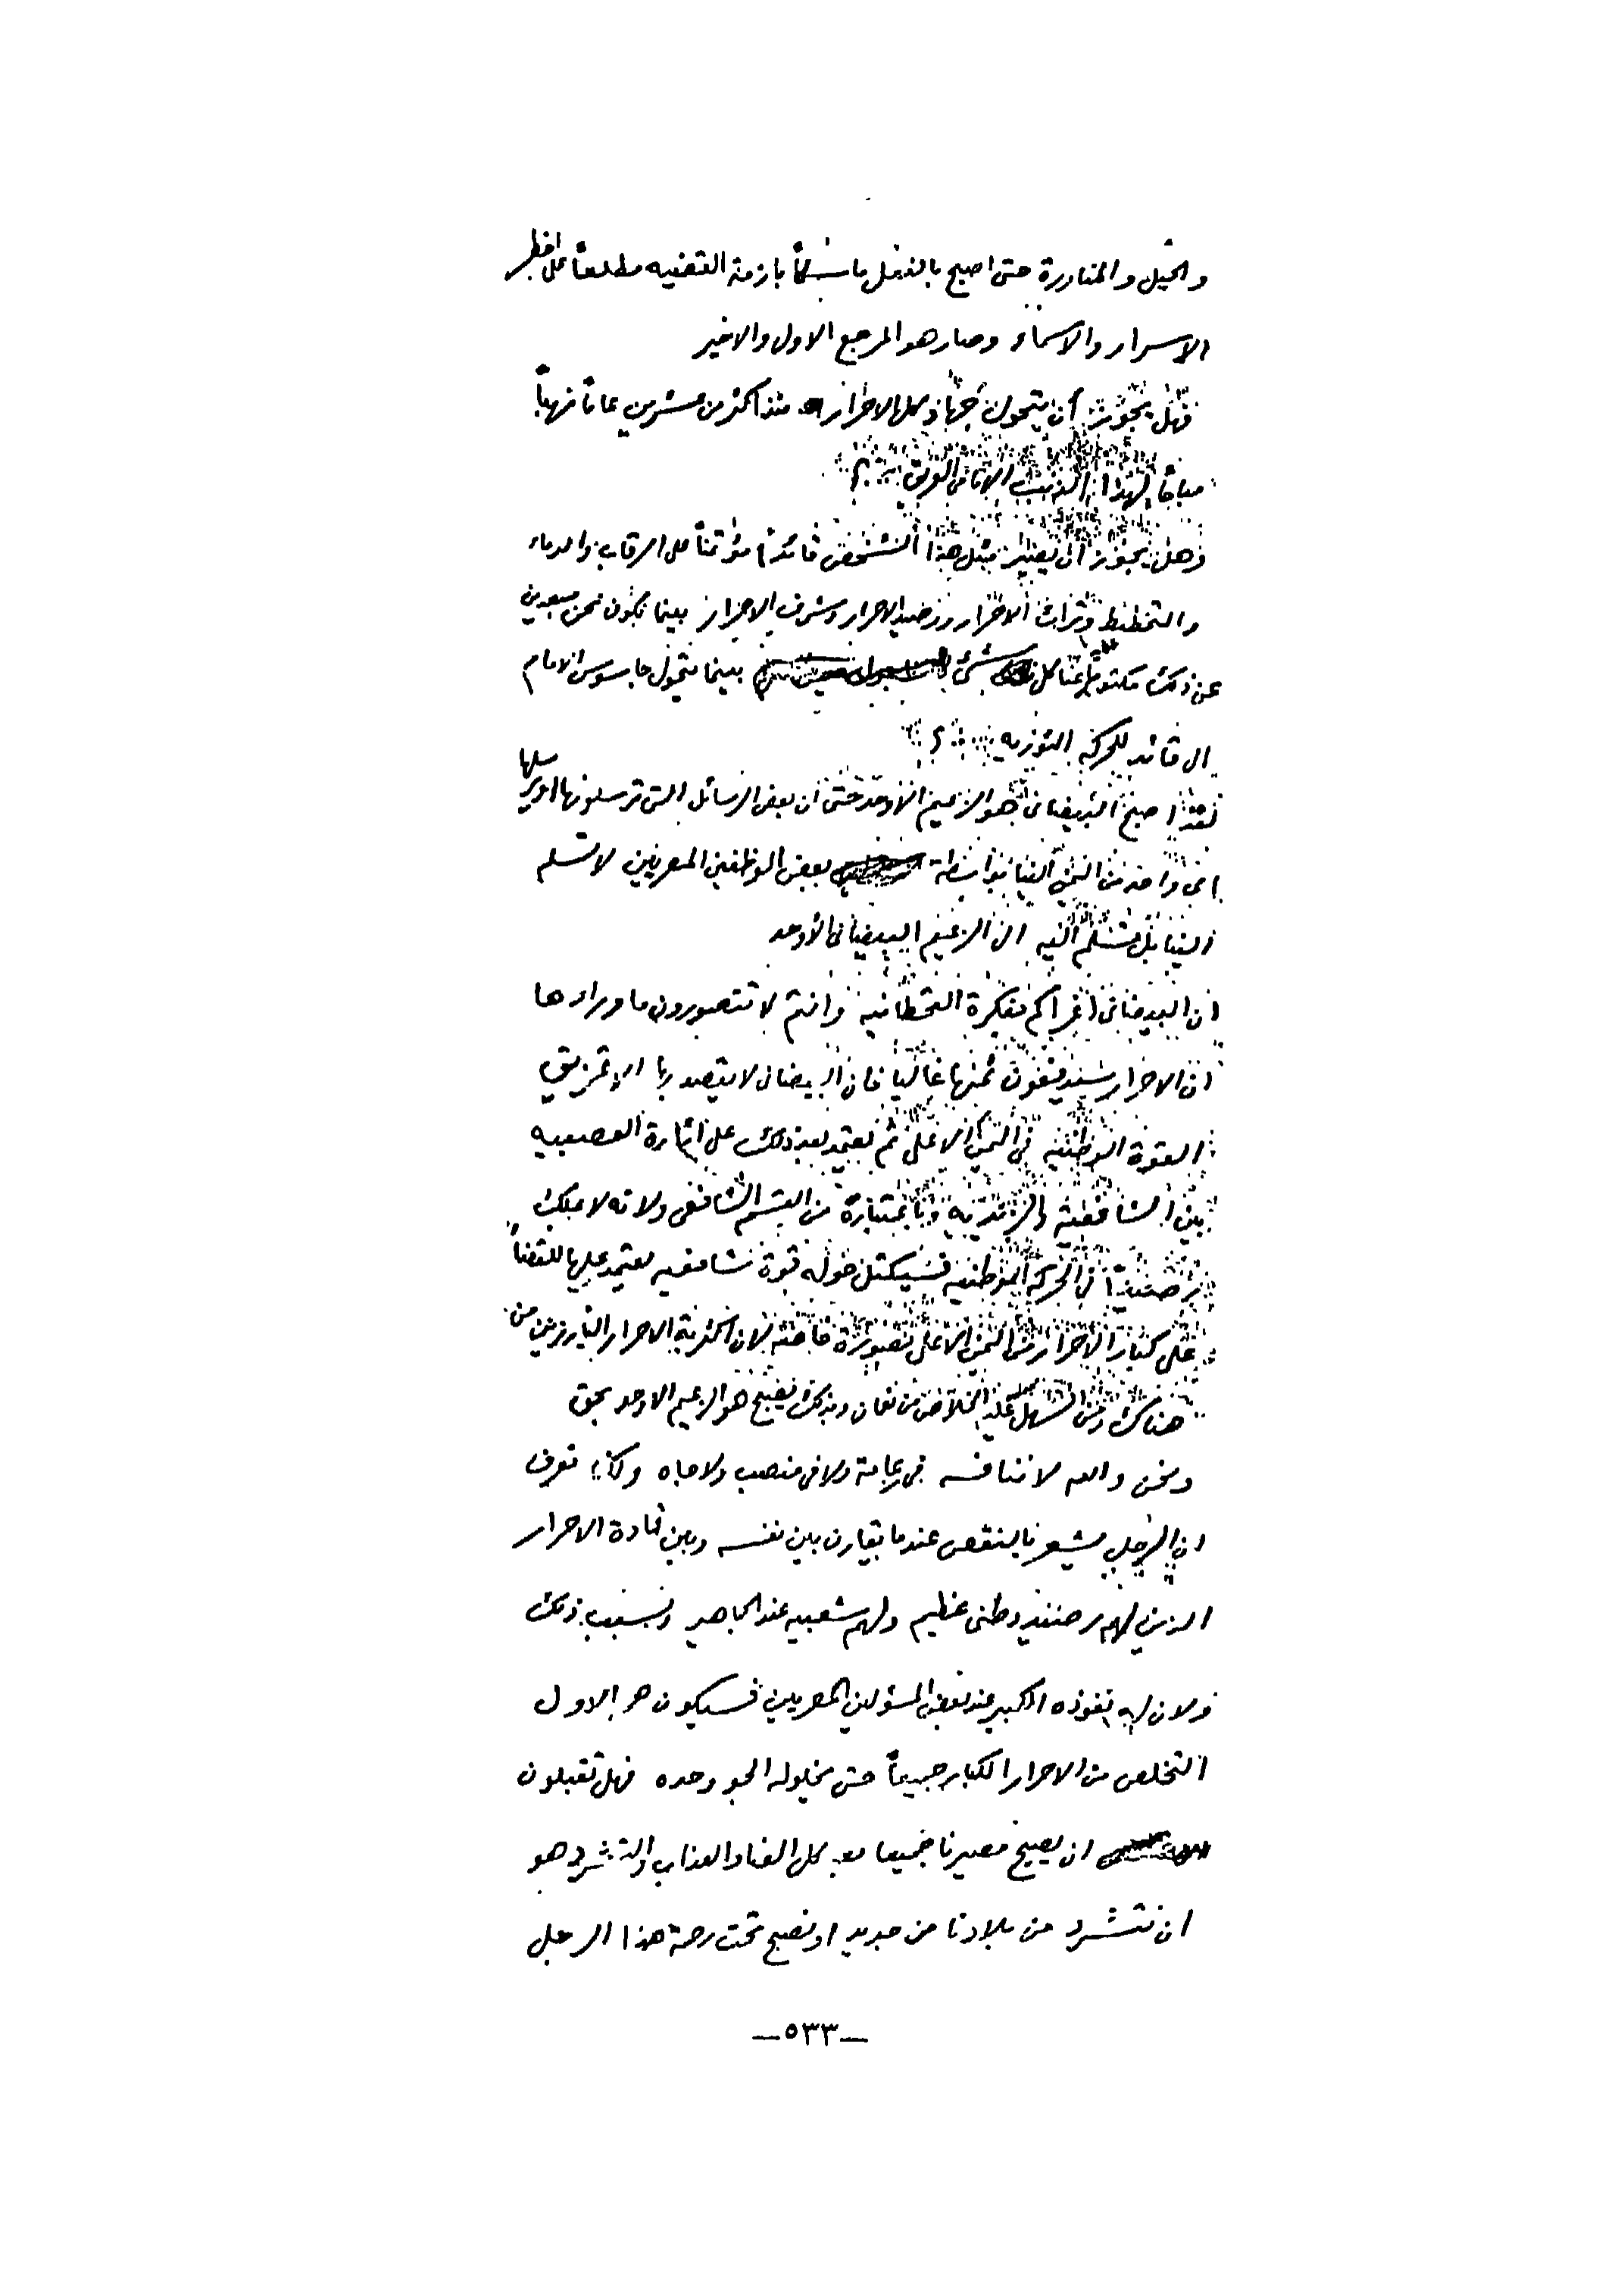 والحيل والمناورة حتى اصبح بالفعل ماسكاً بازمة القضيه مطلعاً على اخطر
الاسرار والاسماء وصار هو المرجع الاول والاخير
فهل يجوز أن يتحول جهاد كل الاحرار منذ اكثر من عشرين عاماً نهباً
مباحاً لهذا الذئب
وهل يجوز أن يصير مثل هذا الشخص قائداً مؤتمناً على الرقاب والدماء
والتخطيط وتراث الاحرار ورصيد الاحرار وشرف الاحرار بينما نكون نحن مبعدين
عن ذلك مكتوماً عنا كل شئ بينما يتحول جاسوس الامام
الى قائد للحركه الثوريه ؟
لقد اصبح البيضاني هو الزعيم الاوحد حتى أن بعض الرسائل التي ترسلونها او يرسلها
اي واحد من اليمن الينا بواسطة بعض الموظفين المصريين لا تسلم
الينا بل تسلم اليه الى الزعيم البيضاني الأوحد
ان البيضاني اغراكم بفكرة القحطانيه وانتم لا تتصورون ما وراءها
ان الاحرار سيدفعون ثمنها غالياً فان البيضاني لا يقصد بها الا تمزيق
القوة الوطنيه في اليمن الاعلى ثم يعتمد بعد ذلك على اثارة العصبيه
بين الشافعيه والزيديه وباعتباره من القسم الشافعي ولانه لا يملك
رصيداً في الحركه الوطنيه فسيكتل حوله قوة شافعيه يعتمد عليها للقضاً
على كبار الاحرار من اليمن الاعلى بصورة خاصه لان اكثرية الاحرار البارزين من
هناك ومن السهل عليه الخلاص من نعمان وبذلك يصبح هو الزعيم الاوحد بحق
ونحن والله لا ننافسه في زعامة ولا في منصب ولا جاه ولكنا نعرف
ان الرجل يشعر بالنقص عندما يقارن بين نفسه وبين قادة الاحرار
الذين لهم رصيد وطني عظيم ولهم شعبيه عند الجماهير وبسبب ذلك
ولان له نفوذه الكبير عند بعض المسئولين المصريين فسيكون همه الاول
التخلص من الاحرار الكبار جميعاً حتى يخلو له الجو وحده فهل تقبلون
ان يصبح مصيرنا جميعا بعد كل العناء والعذاب والتشرد هو
ان نتشرد من بلادنا من جديد او نصبح تحت رحمة هذا الرجل
—٥٣٣—